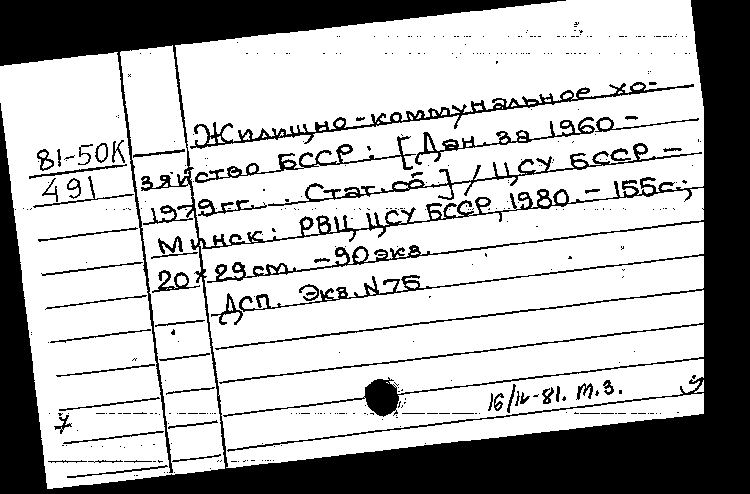 Жилищно-коммунальное хо-
81-50К
491
зяйство БССР: [Дан. за 1960-
1979гг. . Стат. сб.] / ЦСУ БССР. -
Минск: РВЦ ЦСУ БССР, 1980. - 155с.;
20×29см. - 90экз.
Дсп. Экз. N75.
16/IV-81. т.з.